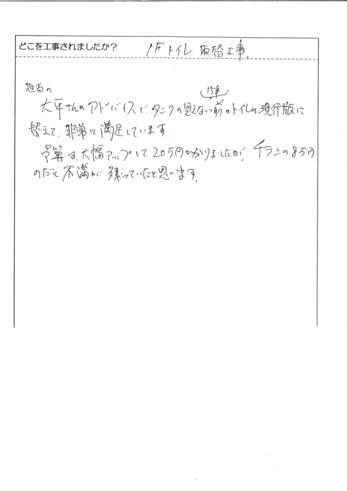 どこを工事されましたか? 1Fトイレ取替工事。
担当の
15年
大平さんのアドバイスでタンクの見えない前のトイレの現行版に
替えて、非常に満足しています。
予算は、大幅アップして20万円かかりましたが、チラシの8万円
のだと不満が残っていたと思います。